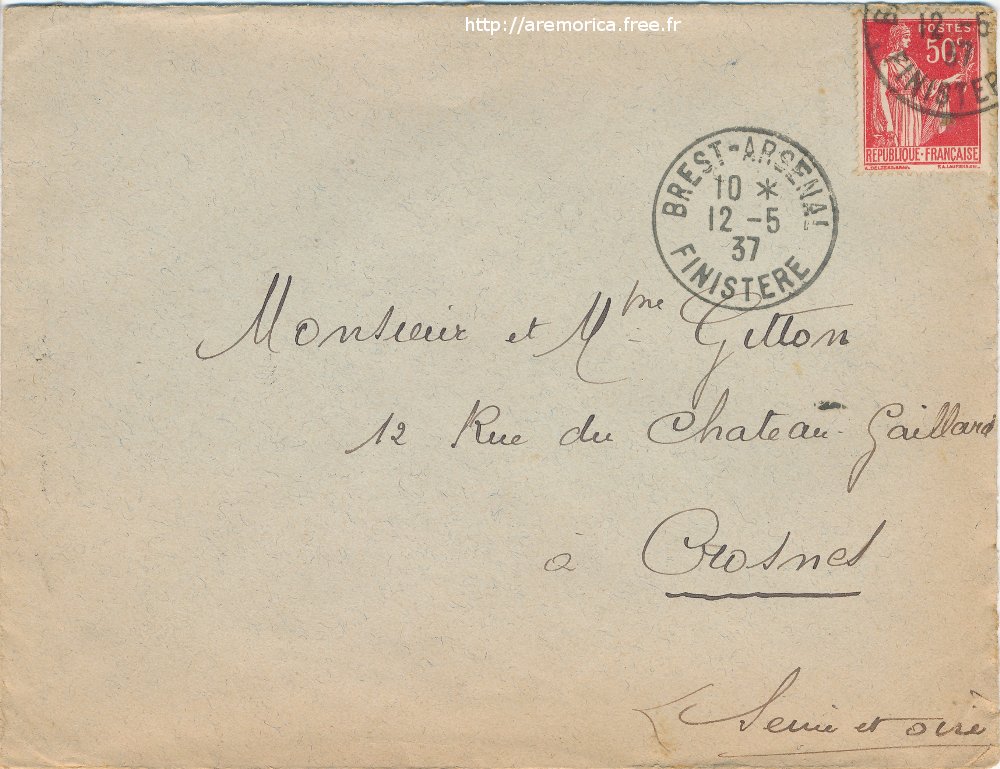 http://aremorica.free.fr
B
12 -5
37
FINISTER
POSTES
50c
REPUBLIQUE·FRANÇAISE
BREST-ARSENAL
10 *
12 -5
37
FINISTERE
Monsieur et Mme Gitton
12 Rue du Chateau-Gaillard
à Crosnes
Seine et oise